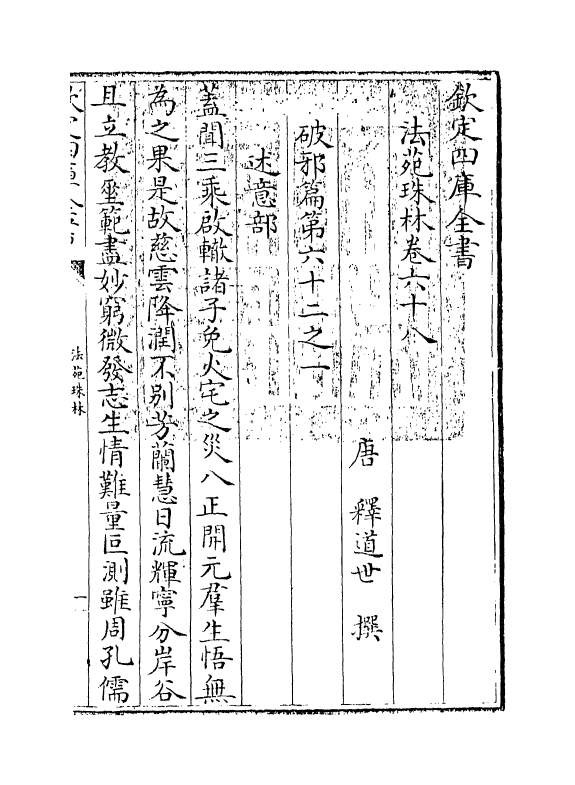 欽定四庫全書
法苑珠林卷六十八
唐 釋道世 撰
破邪篇第六十二之一
述意部
蓋聞三乘啟轍諸子免火宅之災八正開元羣生悟無
為之果是故慈雲降潤不别芳蘭慧日流輝寧分岸谷
且立教垂範盡妙窮微發志生情難量叵測雖周孔儒
法苑珠林
一